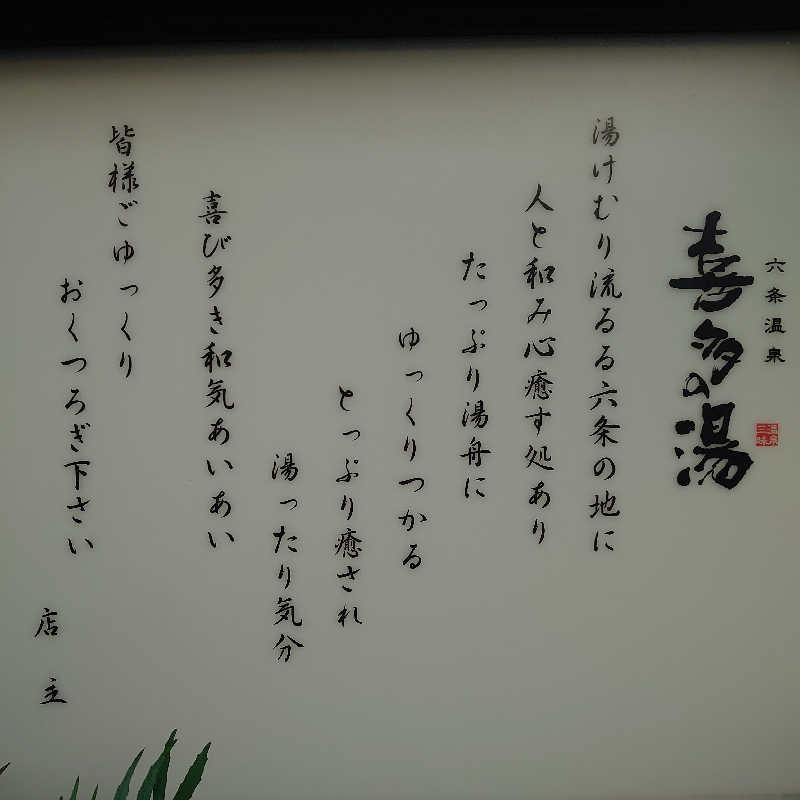 六条温泉
喜多の湯
温泉
三昧
湯けむり流るる六条の地に
人と和み心癒す処あり
たっぷり湯舟に
ゆっくりつかる
とっぷり癒され
湯ったり気分
喜び多き和気あいあい
皆様ごゆっくり
おくつろぎ下さい
店主